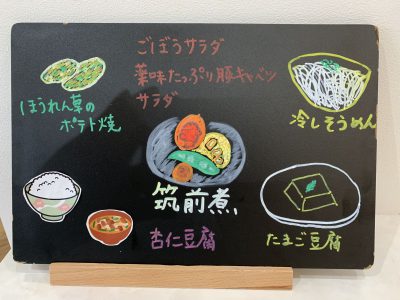 ごぼうサラダ
薬味たっぷり豚キャベツ
サラダ
ほうれん草の
ポテト焼
冷しそうめん
筑前煮
杏仁豆腐
たまご豆腐